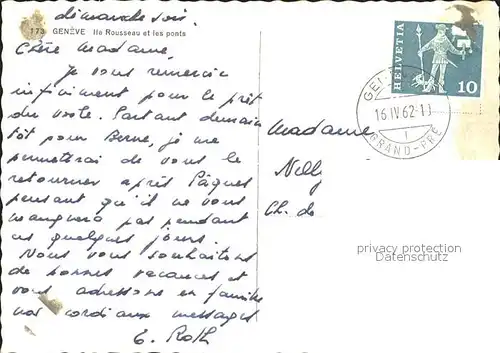 dimanche soir.
173 GENÈVE Ile Rousseau et les ponts
Chère Madame,
Je vous remercie
infiniment pour le prêt
du voile. Partant demain
tôt pour Berne, je me
permettrai de vous le
retourner après Pâques
pensant qu'il ne vous
manquera pas pendant
ces quelques jours.
Nous vous souhaitons
de bonnes vacances et
vous adressons en famille
nos cordiaux messages
E. Roth
HELVETIA
10
16.IV.62-1
GRAND-PRÉ
Madame
Nelly
Ch. de
privacy protection
Datenschutz